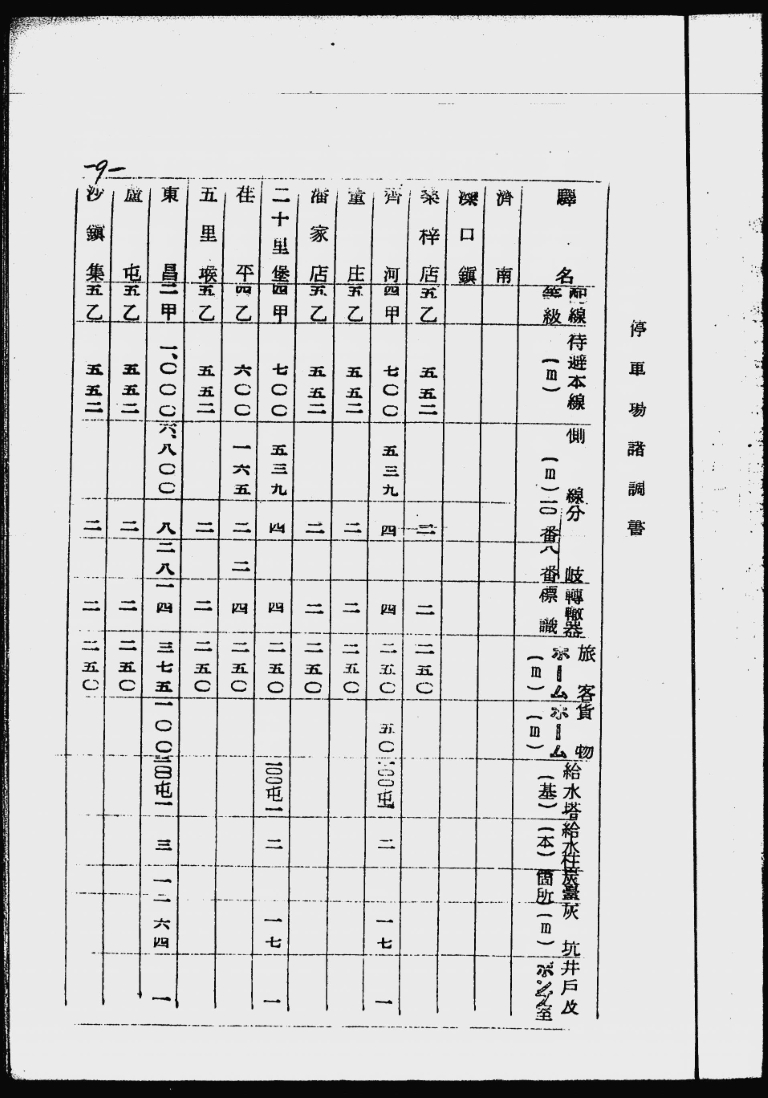 -9-
停車場諸調書
驛名 配線等級 待避本線(m) 側線(m) 分岐 一〇番 八番 轉轍器標識 旅客ホーム(m) 貨物ホーム(m) 給水塔(基) 給水柱(本) 炭臺箇所 灰坑(m) 井戶及ポンプ室
濟南
深口鎭
桑梓店 五乙 五五二 二 二 二五〇
齊河 四甲 七〇〇 五三九 四 四 二五〇 五〇 一〇〇屯一 二 一七 一
董庄 五乙 五五二 二 二 二五〇
潘家店 五乙 五五二 二 二 二五〇
二十里堡 四甲 七〇〇 五三九 四 四 二五〇 一〇〇屯一 二 一七 一
茌平 四乙 六〇〇 一六五 二 二 四 二五〇
五里堠 五乙 五五二 二 二 二五〇
東昌 二甲 一、〇〇〇 六、八〇〇 八 二八 一四 三七五 一〇〇 二〇〇屯一 三 一 一六四 一
盧屯 五乙 五五二 二 二 二五〇
沙鎭集 五乙 五五二 二 二 二五〇